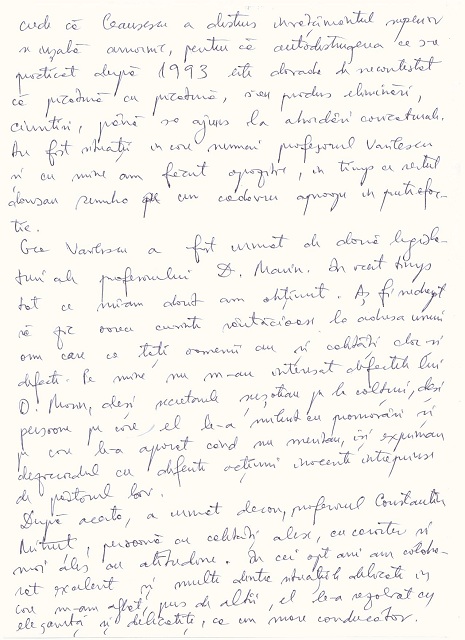 crede că Ceausescu a distrus învățământul superior
 anormi, pentru că autodistrugerea ce s-a
practicat după 1993 este dovada de necontestat
că picătură cu picătură, s-au produs eliminări,
ciuntiri, până s-a ajuns la abordări conceptuale.
Au fost situații in care numai profesorul Vasilescu
si cu mine am făcut opoziție, in timp ce restul
dansau rumba pe un cadavru aproape in putrefac-
tie.
Gee Vasilescu a fost urmat de două legisla-
turi ale profesorului D. Marin. In acest timp
tot ce mi-am dorit am obtinut. Aș fi nedrept
să fac vreo cuvinte răutăcioase la adresa unui
om care ca toți oamenii au și calități dar si
defecte. Pe mine nu m-au interesat defectele lui
D. Marin, desi secretarele șușoteau pe la colțuri, desi
persoane pe care el le-a miluit cu promovări și
pe care le-a aparat cand nu meritau, isi exprimau
dezacordul cu diferite acțiuni inocente intreprinse
de păstorul lor.
După acesta, a urmat decan, profesorul Constantin
Mitrut, persoană cu calități alese, cu caracter si
mai ales cu atitudine. In cei opt ani am colabo-
rat excelent și multe dintre situatiile delicate in
care m-am aflat, pus de alții, el le-a rezolvat cu
eleganță și delicatețe, ca un mare conducator.